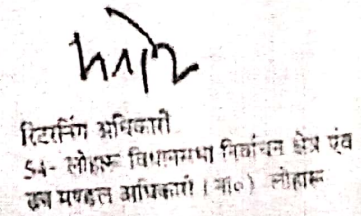 रिटरनिंग अधिकारी
54- लोहारू विधानसभा निर्वाचन क्षेत्र एंव
उप मण्डल अधिकारी (ना०) लोहारू